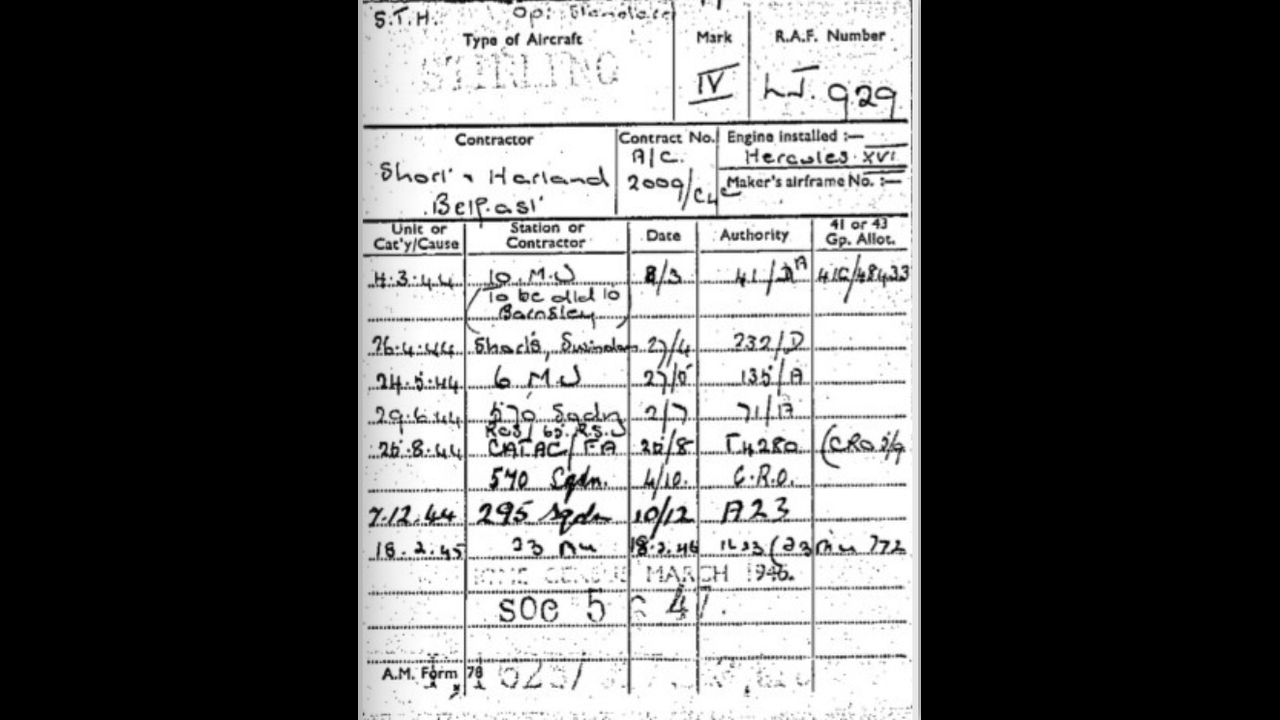 S.T.H. Op:
Type of Aircraft Mark R.A.F. Number
STIRLING IV LJ. 929
Contractor Contract No. Engine installed :—
Short & Harland A/C. Hercules XVI
Belfast 2009/ Maker's airframe No. :—
Unit or Cat'y/Cause Station or Contractor Date Authority 41 or 43 Gp. Allot.
4.3.44 10 M.U 8/3 41/DA 41G/48433
(To be alld to
Barnsley)
26.4.44 Short's, Swindon 27/4 232/D
24.5.44 6 M U 27/5 135/A
29.6.44 570 Sqdn 2/7 71/
25.8.44 CAT AC/FA /8 4280 (CRO
570 Sqdn. 4/10. C.R.O.
7.12.44 295 Sqdn 10/12 A23
18.2.45 23 MU 18.2.46 (23 MU 772
CENSUS MARCH 1946.
SOC 5 6 47.
A.M. Form 78